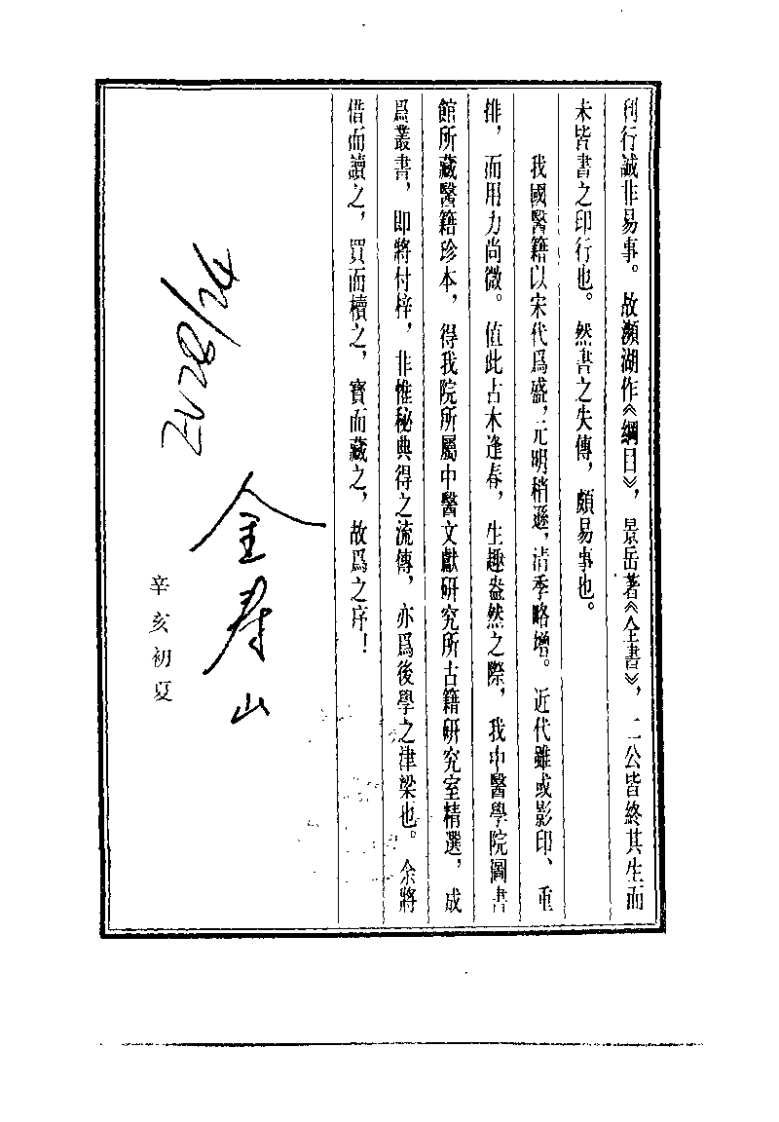 利行誠非易事。故瀕湖作《綱目》，景岳著《全書》，二公皆終其生而
未皆書之印行也。然書之失傳，頗易事也。
我國醫籍以宋代爲盛，元明稍遜，清季略增。近代雖或影印、重
排，而用力尚微。值此古木逢春，生趣盎然之際，我中醫學院圖書
館所藏醫籍珍本，得我院所屬中醫文獻研究所古籍研究室精選，成
爲叢書，即將付梓，非惟秘典得之流傳，亦爲後學之津梁也。余將
借而讀之，買而櫝之，寶而藏之，故爲之序！
金壽山
辛亥初夏
2028/24